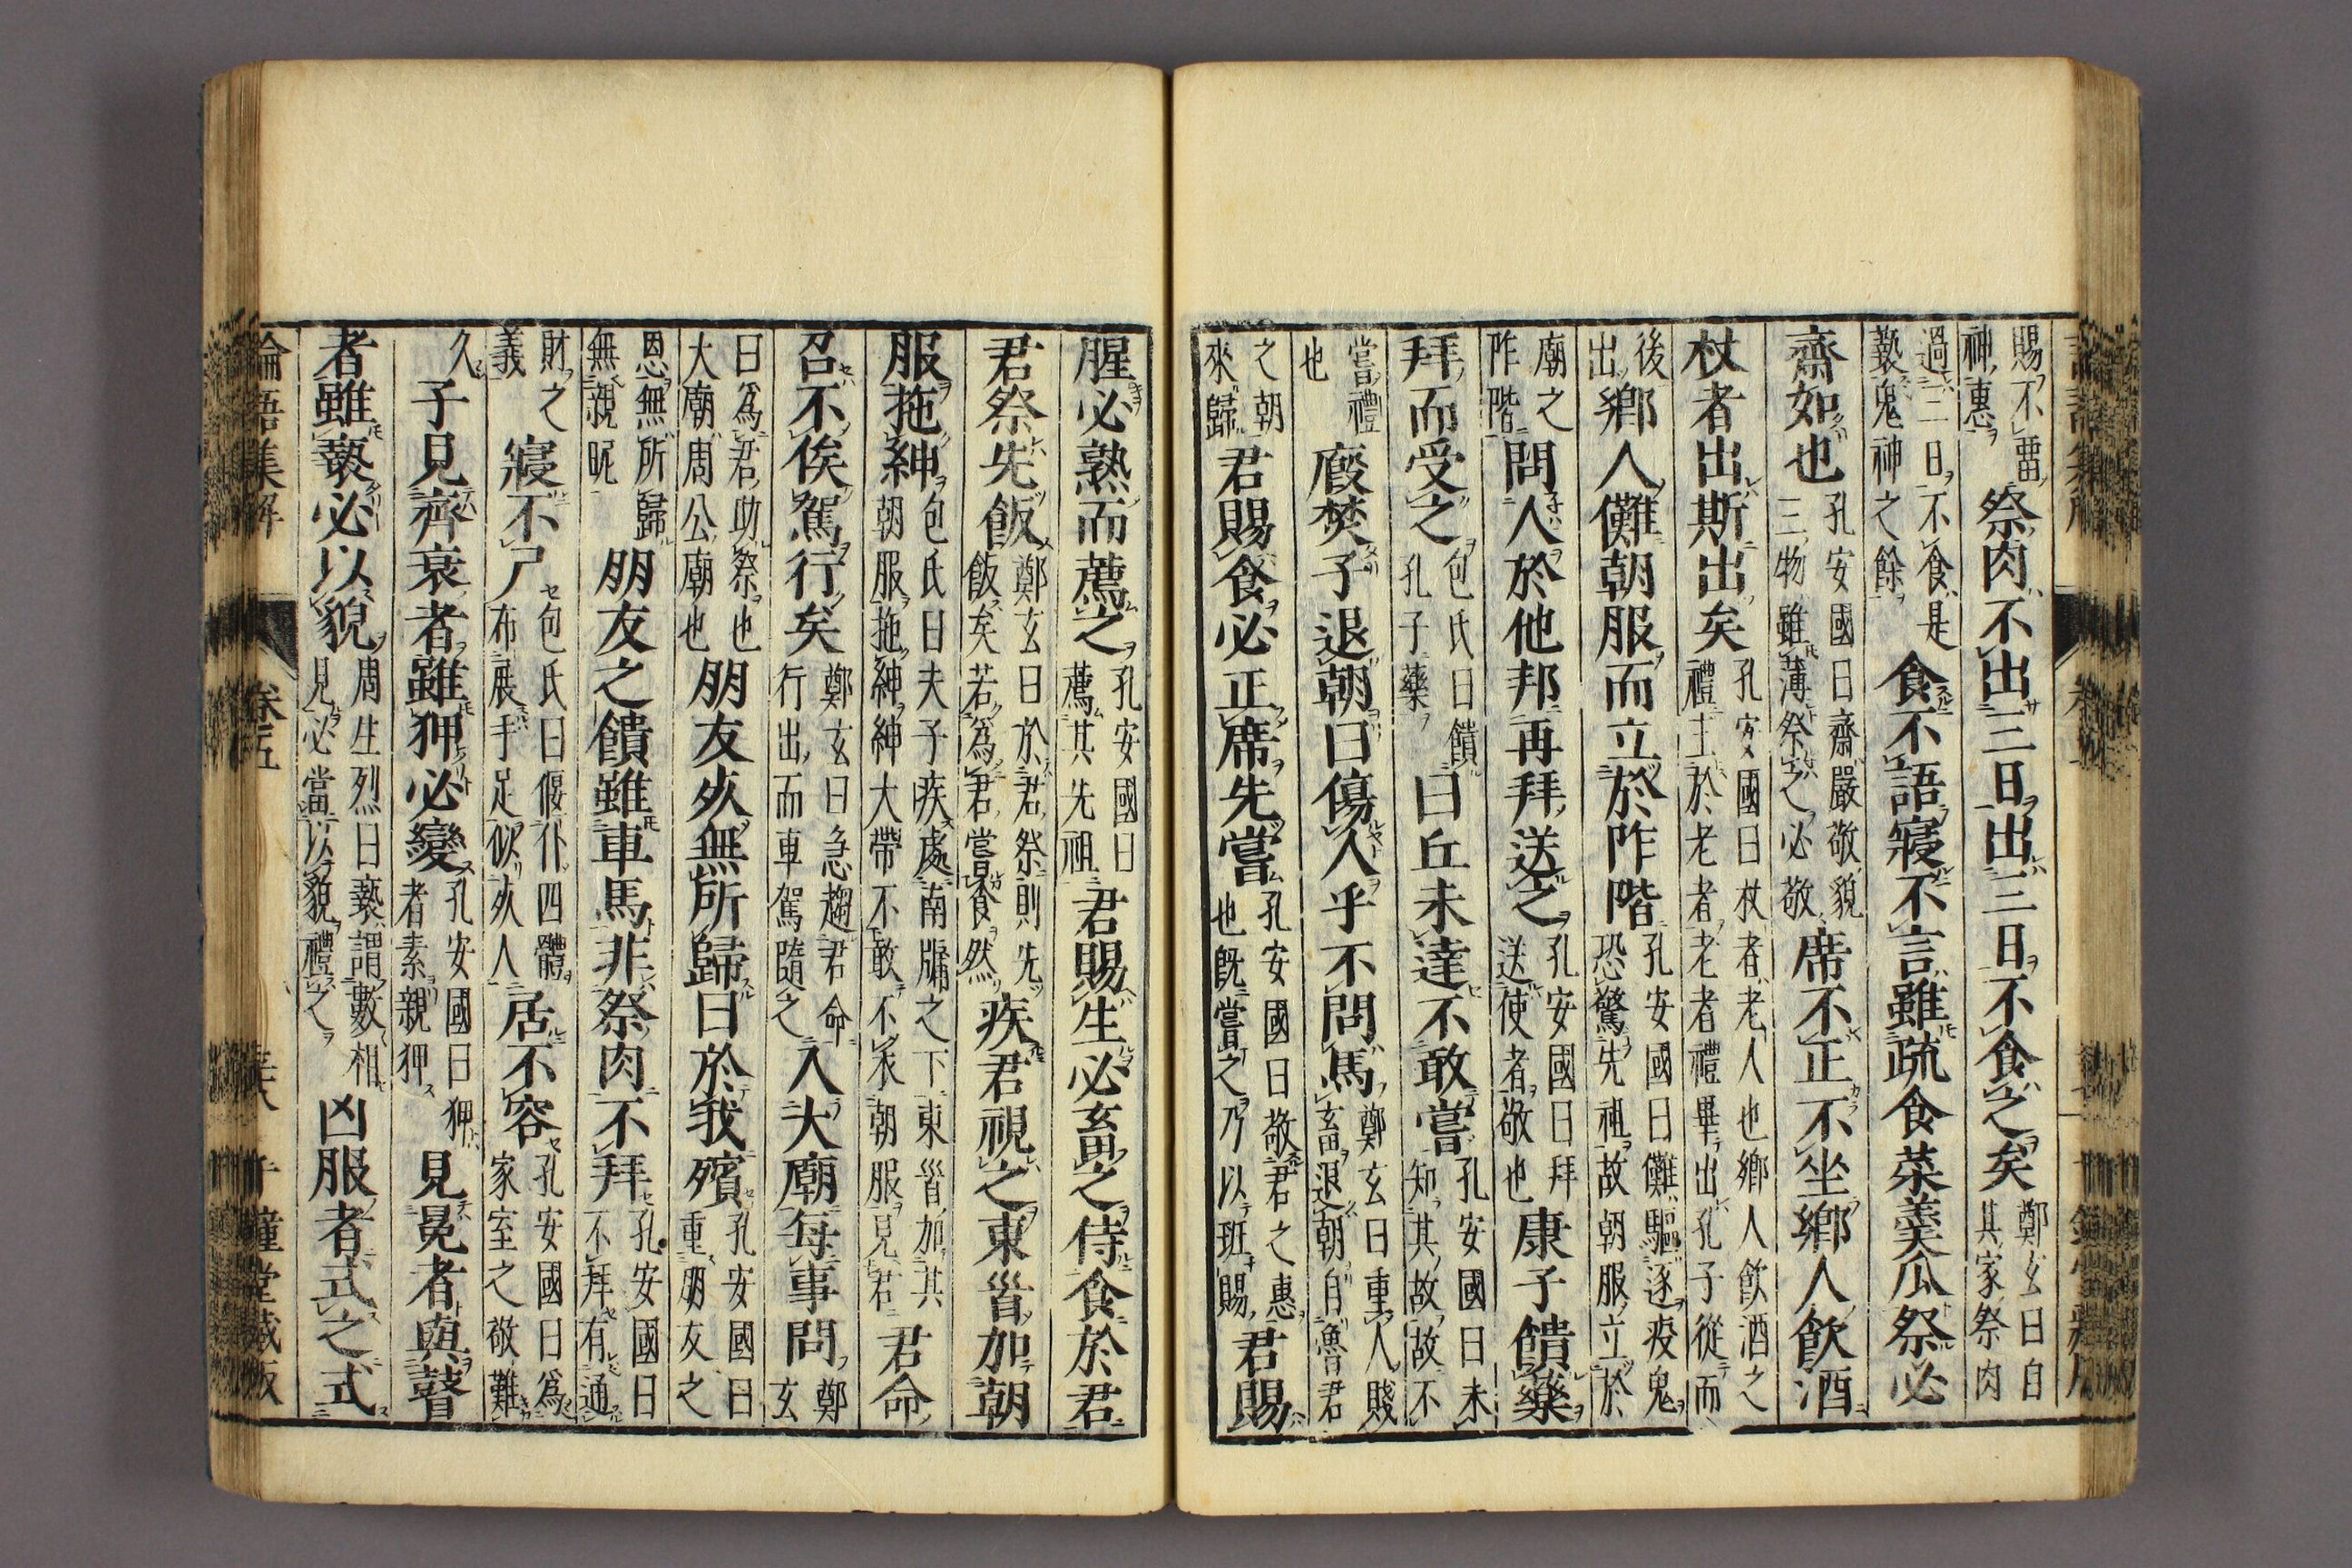 賜不畱神惠祭肉不出三日出三日不食之矣鄭玄曰自其家祭肉
過三日不食是褻鬼神之餘食不語寢不言雖疏食菜羹瓜祭必
齋如也孔安國曰齋嚴敬貌三物雖薄祭之必敬席不正不坐鄉人飲酒
杖者出斯出矣孔安國曰杖者老人也鄉人飲酒之禮主於老者老者禮畢出孔子從而
後出鄉人儺朝服而立於阼階孔安國曰儺驅逐疫鬼恐驚先祖故朝服立於
廟之阼階問人於他邦再拜送之孔安國曰拜送使者敬也康子饋藥
拜而受之包氏曰饋孔子藥曰丘未達不敢嘗孔安國曰未知其故故不
嘗禮也廄焚子退朝曰傷人乎不問馬鄭玄曰重人賤畜退朝自魯君
之朝來歸君賜食必正席先嘗孔安國曰敬君之惠也既嘗之乃以班賜君賜
腥必熟而薦之孔安國曰薦其先祖君賜生必畜之侍食於君
君祭先飯鄭玄曰於君祭則先飯矣若為君嘗食然疾君視之東首加朝
服拖紳包氏曰夫子疾處南牖之下東首加其朝服拖紳紳大帶不敢不衣朝服見君君命
召不俟駕行矣鄭玄曰急趨君命行出而車駕隨之入大廟每事問鄭玄
曰爲君助祭也大廟周公廟也朋友死無所歸曰於我殯孔安國曰重朋友之
恩無所歸無親昵朋友之饋雖車馬非祭肉不拜孔安國曰不拜有通
財之義寢不尸包氏曰偃仆四體布展手足似死人居不容孔安國曰爲家室之敬難
久子見齊衰者雖狎必變孔安國曰狎者素親狎見冕者與瞽
者雖褻必以貌周生烈曰褻謂數相見必當以貌禮之凶服者式之式
論語集解 卷五 千鍾堂藏版